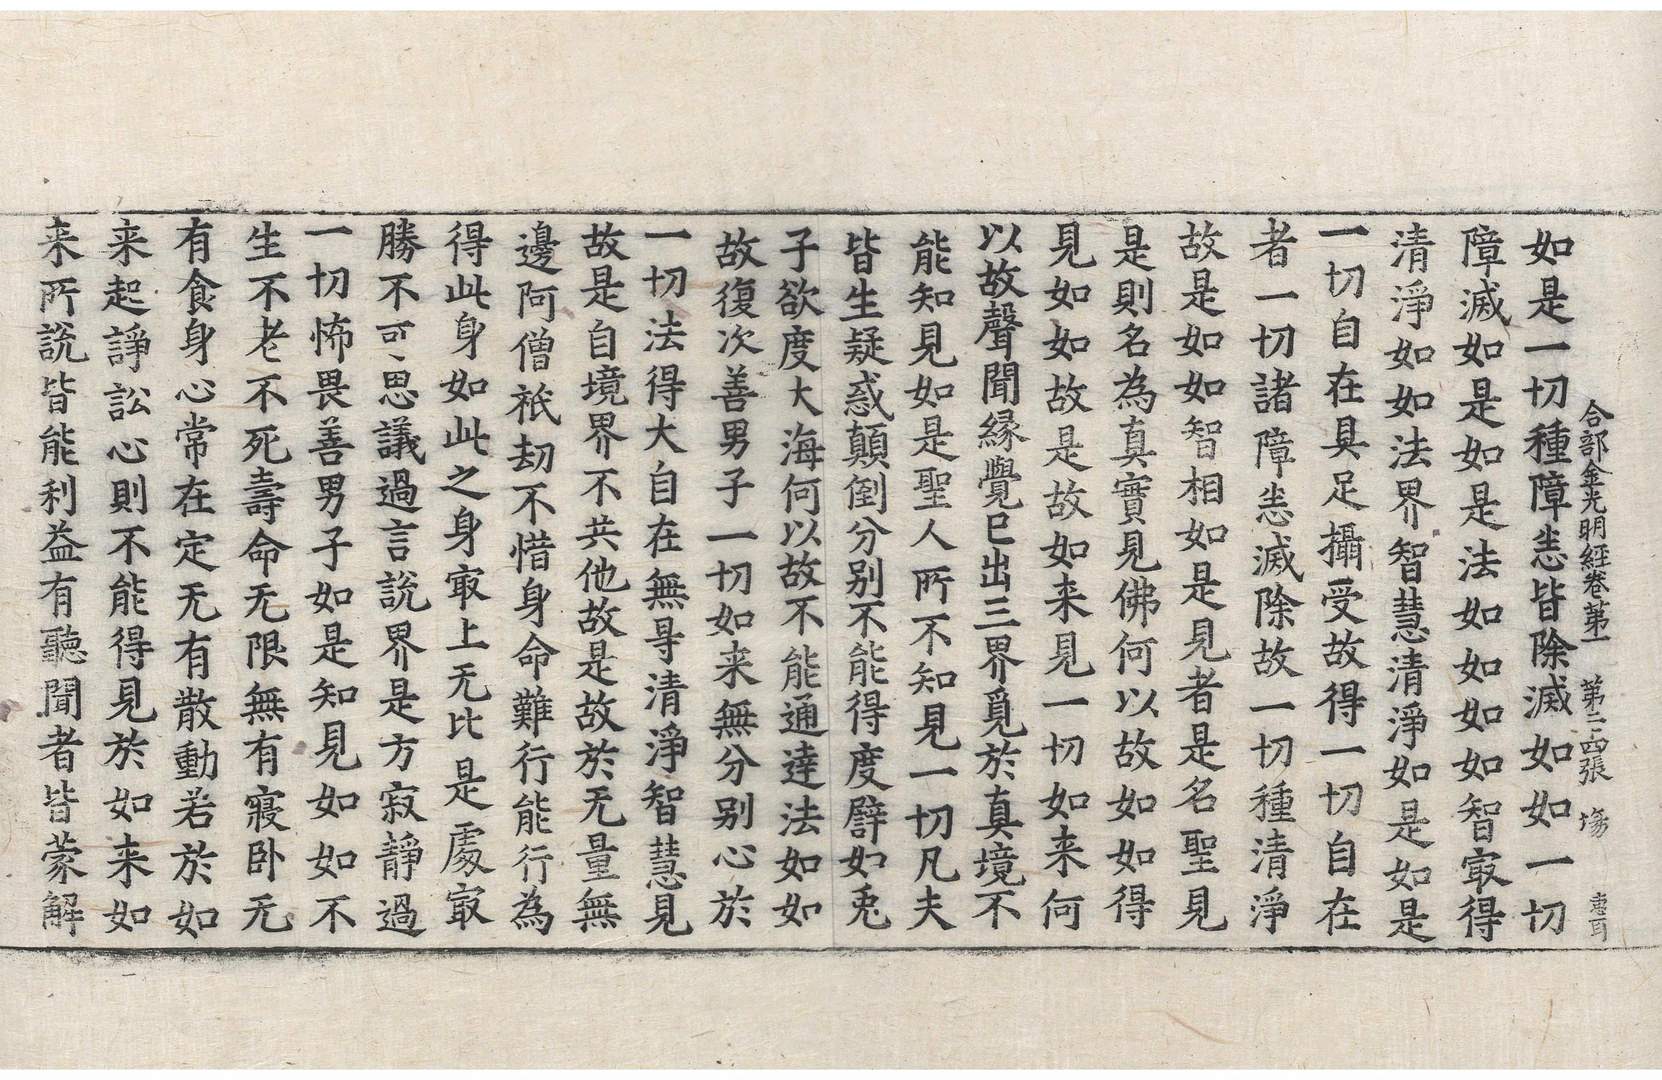 合部金光明經卷第一　第二四張　場　惠耳
如是一切種障恚皆除滅如如一切
障滅如是如是法如如如智㝡得
清淨如如法界智慧清淨如是如是
一切自在具足攝受故得一切自在
者一切諸障恚滅除故一切種清淨
故是如如智相如是見者是名聖見
是則名為真實見佛何以故如如得
見如如故是故如来見一切如来何
以故聲聞緣覺已出三界覓於真境不
能知見如是聖人所不知見一切凡夫
皆生疑惑顛倒分別不能得度譬如兎
子欲度大海何以故不能通達法如如
故復次善男子一切如来無分別心於
一切法得大自在無㝵清淨智慧見
故是自境界不共他故是故於无量無
邊阿僧祇劫不惜身命難行能行為
得此身如此之身㝡上无比是處㝡
勝不可思議過言說界是方寂靜過
一切怖畏善男子如是知見如如不
生不老不死壽命无限無有寢卧无
有食身心常在定无有散動若於如
来起諍訟心則不能得見於如来如
来所說皆能利益有聽聞者皆蒙解